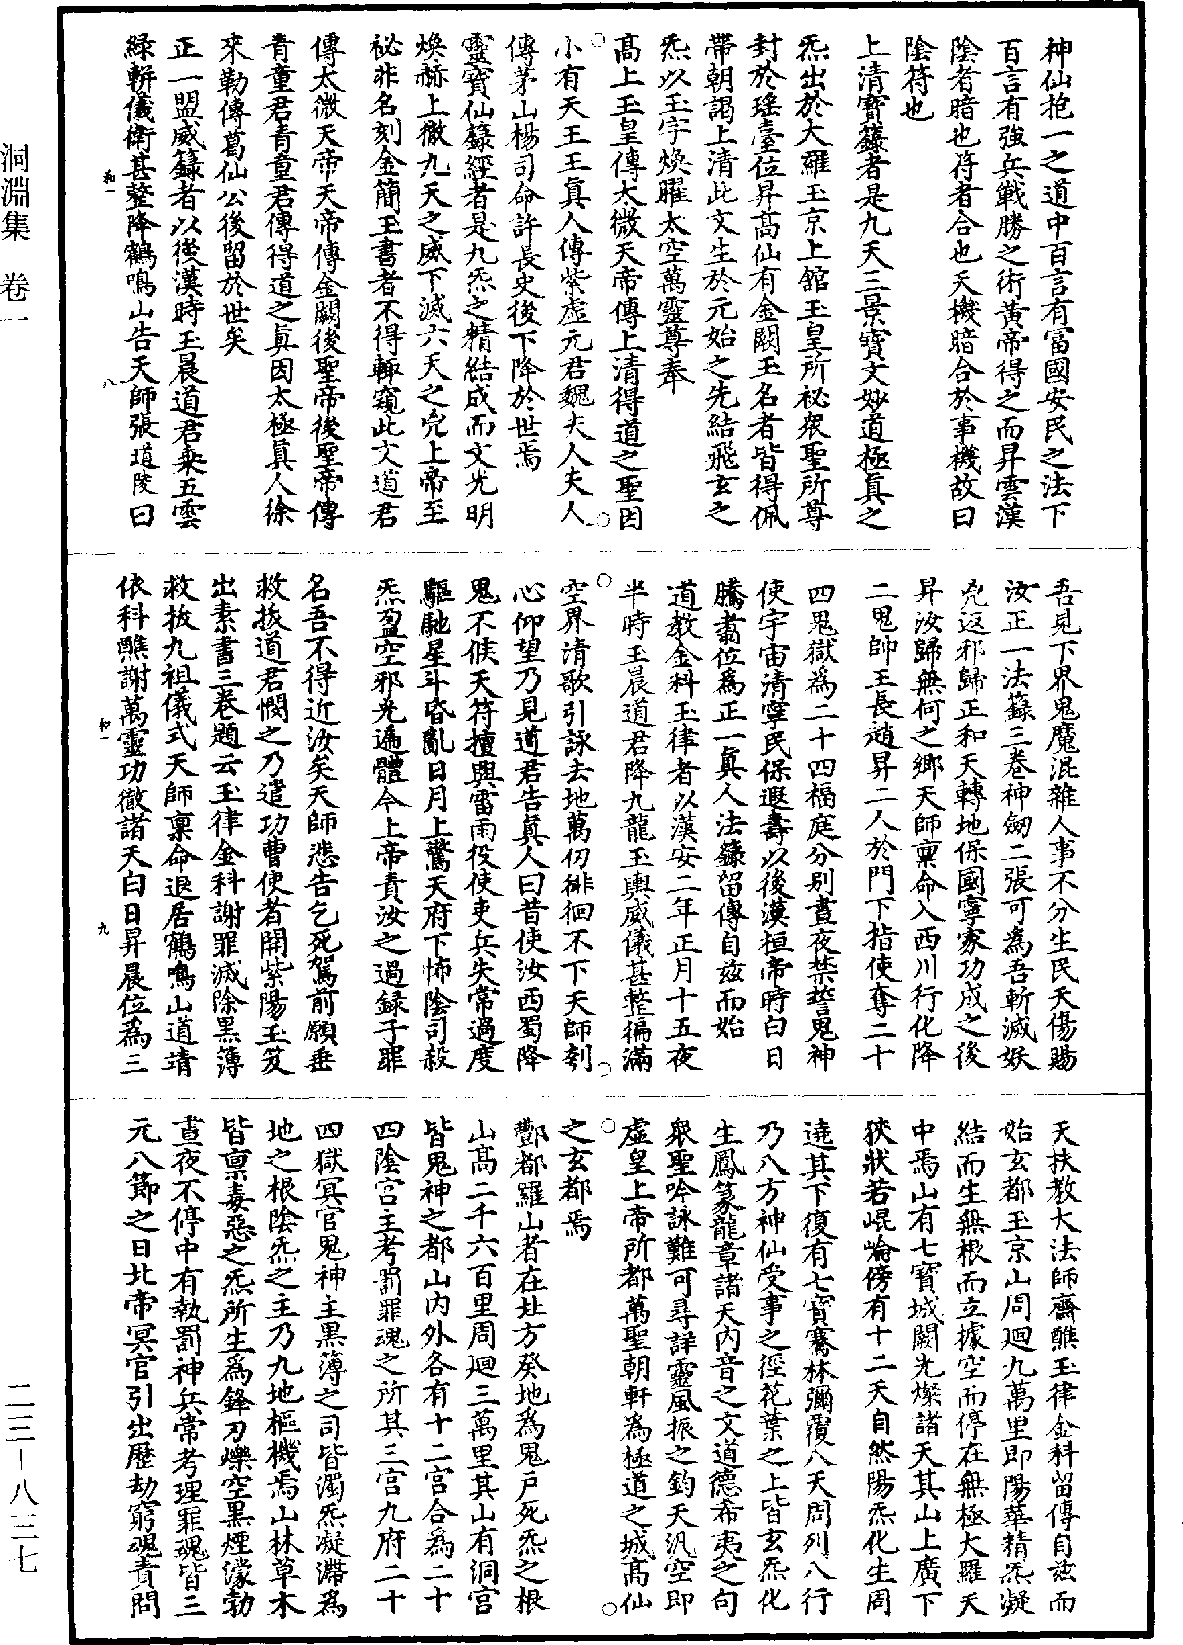 洞淵集 卷一
神仙抱一之道中百言有富國安民之法下
百言有強兵戰勝之術黃帝得之而昇雲漢
陰者暗也符者合也天機暗合於事機故曰
陰符也
上清寶籙者是九天三景寶文妙道極真之
炁出於大羅玉京上舘玉皇所祕衆聖所尊
封於瑤臺位昇高仙有金闕玉名者皆得佩
帶朝謁上清此文生於元始之先結飛玄之
炁以玉字煥曜太空萬靈尊奉
高上玉皇傳太微天帝傳上清得道之聖因
小有天王王真人傳紫虛元君魏夫人夫人
傳茅山楊司命許長史後下降於世焉
靈寶仙籙經者是九炁之精結成而文光明
煥赫上徹九天之威下滅六天之兇上帝至
祕非名刻金簡玉書者不得輙窺此文道君
傳太微天帝天帝傳金闕後聖帝後聖帝傳
青童君青童君傳得道之真因太極真人徐
來勒傳葛仙公後留於世矣
正一盟威籙者以後漢時玉晨道君乘五雲
綠軿儀衛甚整降鶴鳴山告天師張道陵曰
和一
八
吾見下界鬼魔混雜人事不分生民夭傷賜
汝正一法籙三卷神劒二張可為吾斬滅妖
兇返邪歸正和天轉地保國寧家功成之後
昇汝歸無何之鄉天師稟命入西川行化降
二鬼帥王長趙昇二人於門下指使奪二十
四鬼獄為二十四福庭分別晝夜禁誓鬼神
使宇宙清寧民保遐壽以後漢桓帝時白日
騰翥位為正一真人法籙留傳自兹而始
道教金科玉律者以漢安二年正月十五夜
半時玉晨道君降九龍玉輿威儀甚整徧滿
空界清歌引詠去地萬仞徘徊不下天師刳
心仰望乃見道君告真人曰昔使汝西蜀降
鬼不候天符擅興雷雨役使吏兵失常過度
驅馳星斗昏亂日月上驚天府下怖陰司殺
炁盈空邪兇遍體今上帝責汝之過録子罪
名吾不得近汝矣天師悲告乞死駕前願垂
救拔道君憫之乃遣功曹使者開紫陽玉笈
出素書三卷題云玉律金科謝罪滅除黑薄
救拔九祖儀式天師稟命退居鶴鳴山道靖
依科醮謝萬靈功徹諸天白日昇晨位為三
和一
九
天扶教大法師齋醮玉律金科留傳自兹而
始玄都玉京山周廻九萬里即陽華精炁凝
結而生無根而立據空而停在無極大羅天
中焉山有七寶城闕光燦諸天其山上廣下
狹狀若崐崙傍有十二天自然陽炁化生周
遶其下復有七寶騫林彌覆八天周列八行
乃八方神仙受事之徑花葉之上皆玄炁化
生鳳篆龍章諸天內音之文道德希夷之句
衆聖吟詠難可尋詳靈風振之鈞天汎空即
虛皇上帝所都萬聖朝軒為極道之城高仙
之玄都焉
酆都羅山者在北方癸地為鬼戶死炁之根
山高二千六百里周廻三萬里其山有洞宮
皆鬼神之都山內外各有十二宮合為二十
四陰宮主考罰罪魂之所其三宮九府二十
四獄冥官鬼神主黑簿之司皆濁炁凝滯為
地之根陰炁之主乃九地樞機焉山林草木
皆稟毒惡之炁所生為鋒刀爍空黑煙濛勃
晝夜不停中有執罰神兵常考理罪魂皆三
元八節之日北帝冥官引出歷劫窮魂責問
二三－八三七